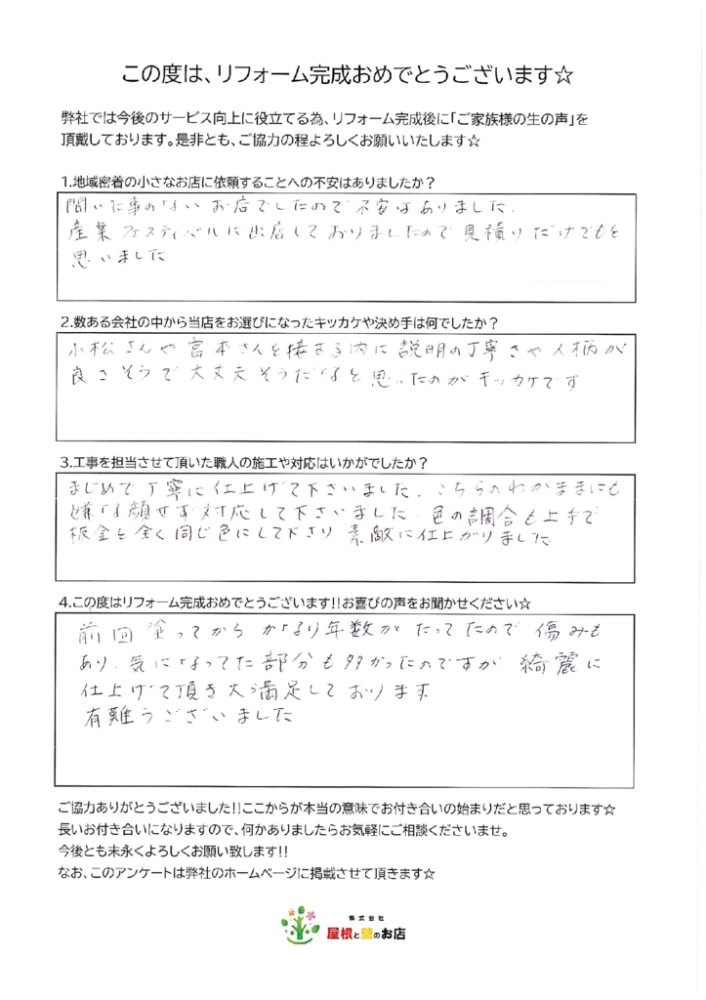 この度は、リフォーム完成おめでとうございます☆
弊社では今後のサービス向上に役立てる為、リフォーム完成後に「ご家族様の生の声」を
頂戴しております。是非とも、ご協力の程よろしくお願いいたします☆
1.地域密着の小さなお店に依頼することへの不安はありましたか？
聞いた事のないお店でしたので不安はありました.
産業フェスティバルに出店しておりましたので見積りだけでもと
思いました
2.数ある会社の中から当店をお選びになったキッカケや決め手は何でしたか？
小松さんや宮本さんと接する内に説明の丁寧さや人柄が
良さそうで大丈夫そうだなと思ったのがキッカケです
3.工事を担当させて頂いた職人の施工や対応はいかがでしたか？
まじめで丁寧に仕上げて下さいました. こちらのわがままにも
嫌な顔せず対応して下さいました. 色の調合も上手で
板金と全く同じ色にして下さり 素敵に仕上がりました
4.この度はリフォーム完成おめでとうございます!!お喜びの声をお聞かせください☆
前回塗ってから かなり年数が たってたので 傷みも
あり. 気になってた部分も多かったのですが 綺麗に
仕上げて頂き大満足しております
有難うございました
ご協力ありがとうございました!!ここからが本当の意味でお付き合いの始まりだと思っております☆
長いお付き合いになりますので、何かありましたらお気軽にご相談くださいませ。
今後とも末永くよろしくお願い致します!!
なお、このアンケートは弊社のホームページに掲載させて頂きます☆
株式会社
屋根と壁のお店